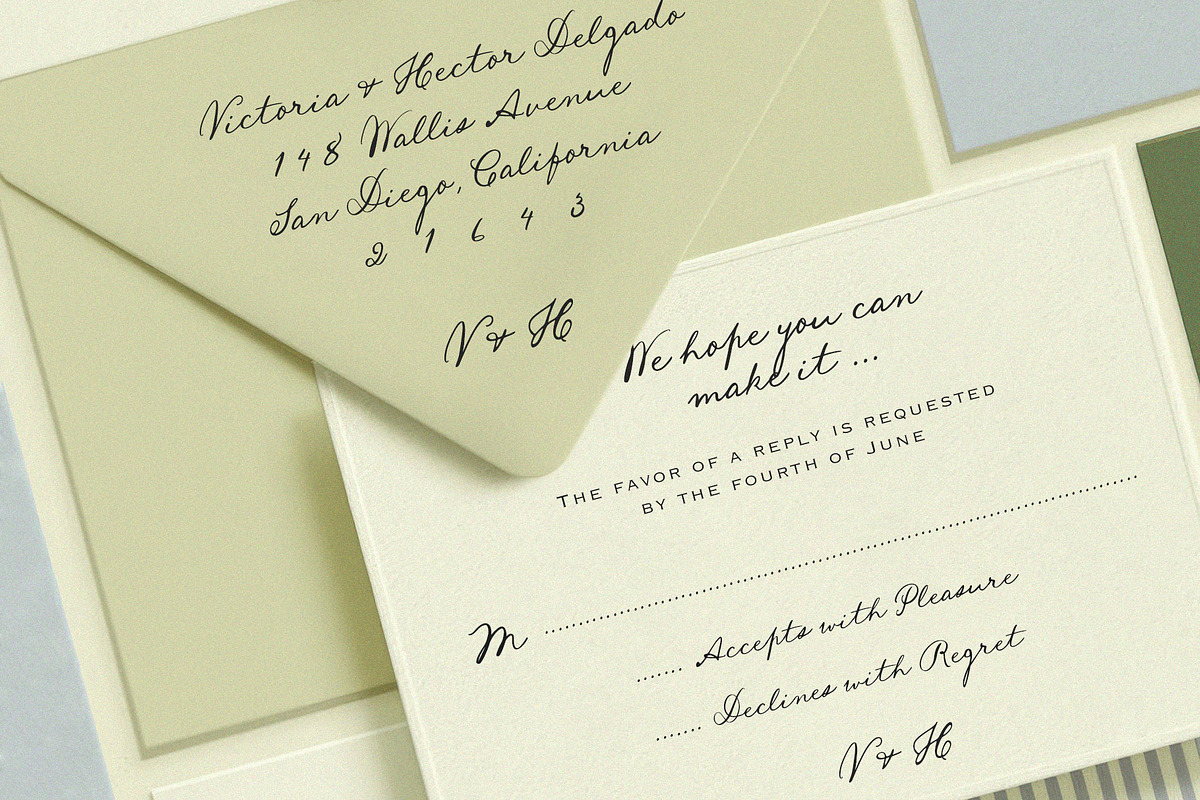 Victoria & Hector Delgado
148 Wallis Avenue
San Diego, California
2 1 6 4 3
V & H
We hope you can
make it ...
THE FAVOR OF A REPLY IS REQUESTED
BY THE FOURTH OF JUNE
M ........................................................................
....... Accepts with Pleasure
....... Declines with Regret
V & H